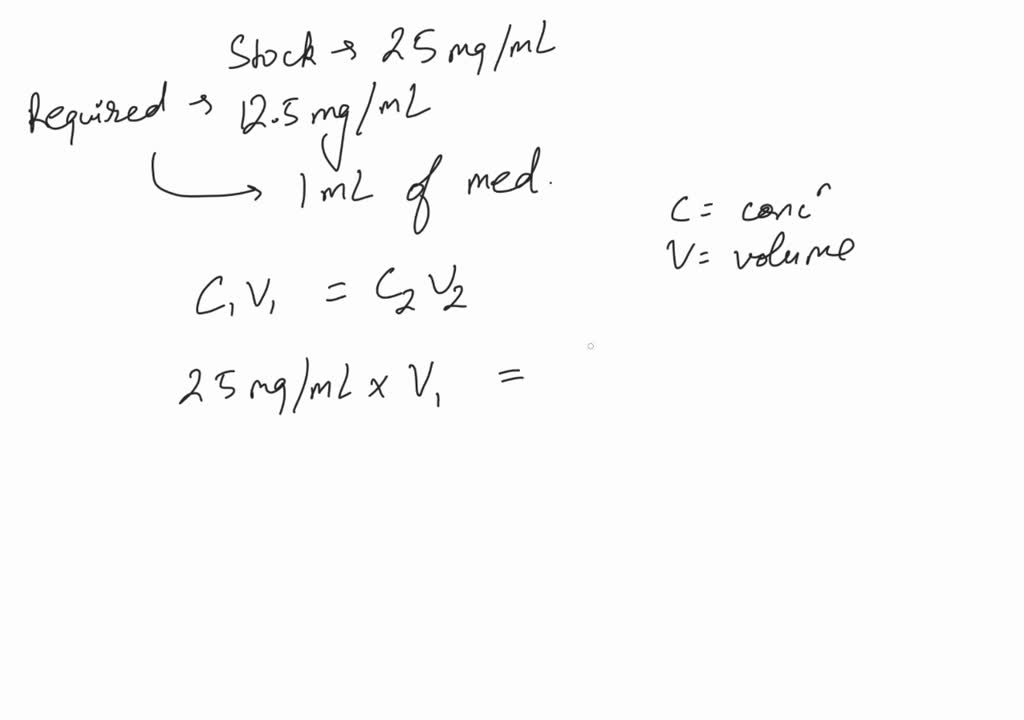 Stock → 25 mg/mL
Required → 12.5 mg/mL
→ 1 mL of med.
C = concⁿ
V = volume
C₁V₁ = C₂V₂
25 mg/mL x V₁ =